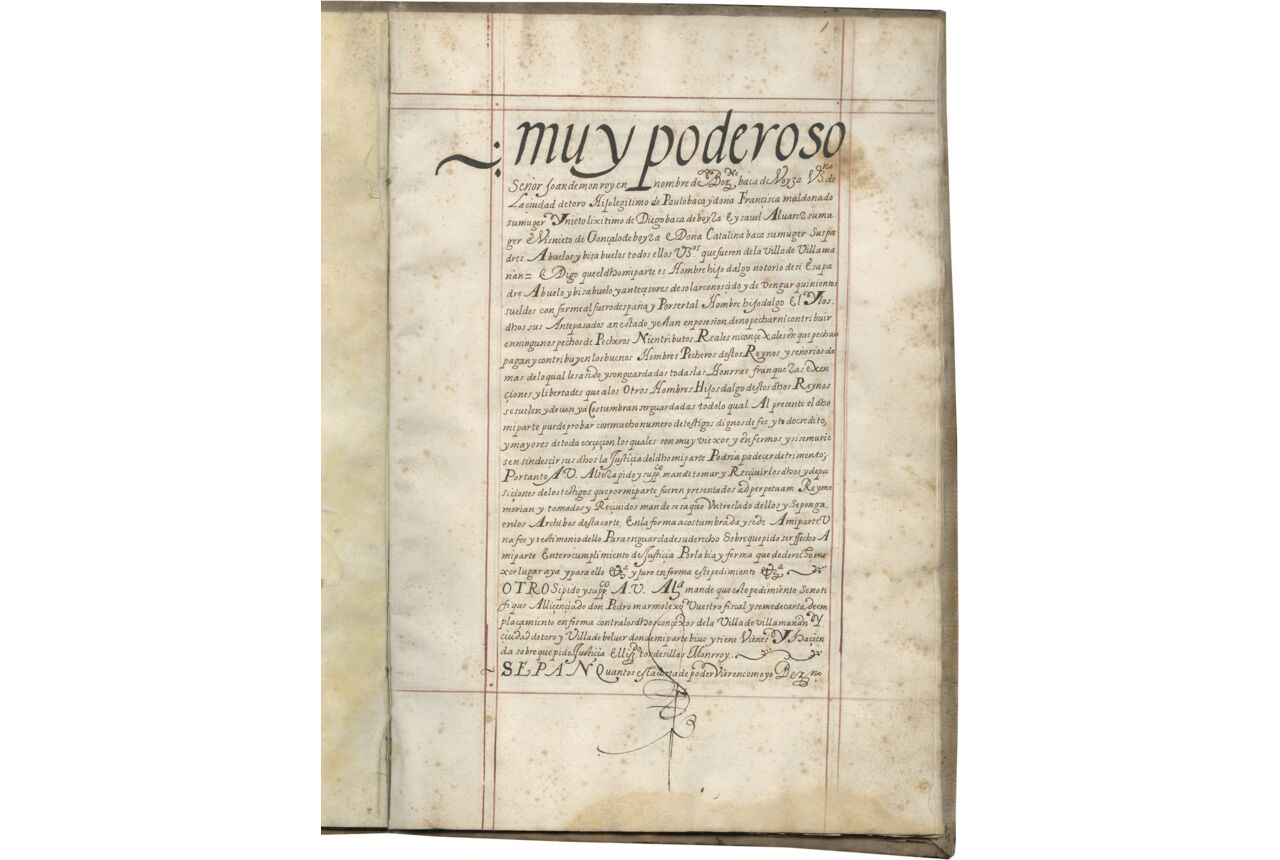 muy poderoso
Señor Joan de monroy en nombre de Berno baca de Noyza Vno de
La ciudad de toro Hijo legitimo de Paulo baca y doña Francisca maldonado
su muger Y nieto lixitimo de Diego baca de boyza E ysavel Alvarez su mu
ger E Visnieto de Gonçalo de boyza E Doña Catalina baca su muger Sus pa
dres Abuelos y bisabuelos todos ellos Vos que fueron de la Villa de Villama
ñan = E Digo que el dho mi parte es Hombre hijo dalgo notorio de si E su pa
dre Abuelo y bisabuelo y antecesores de solar conoscido y de vengar quinientos
sueldos conforme al fuero despaña y Por ser tal Hombre hijo dalgo El Y los
dhos sus Antepasados an estado y estan en posesion de no pechar ni contribuir
en ningunos pechos de Pecheros Ni en tributos Reales ni conçexales en que pechan
pagan y contribuyen los buenos Hombres Pecheros destos Reynos y señorios de
mas de lo qual les a sido y son guardadas todas las Honrras franquezas exen
çiones y libertades que a los Otros Hombres Hijos dalgo destos dhos Reynos
se suelen y deven y a Costumbran ser guardadas todo lo qual Al presente el dho
mi parte puede probar con mucho numero de testigos dignos de fee y todo credito,
y mayores de toda exçeçion los quales son muy viexos y enfermos y si se murie
sen sin desçir sus dhos la Justicia del dho mi parte Podria padecer detrimento;
Por tanto A V. Alteza pido y suppco mande tomar y Resçiuir los dhos y depu
siçiones de los testigos que por mi parte fueren presentados ad perpetuam Rey me
morian y tomados y Reçiuidos mande se saque Vn treslado dellos y Se ponga,
en los Archibos desta corte, En la forma acostumbrada y se de A mi parte V
na fee y testimonio dello Para en guarda de su derecho Sobre que pido ser ffecho A
mi parte Entero cumplimiento de Justiçia Por la bia y forma que de derecho me
xor lugar aya y para ello &a y juro en forma este pedimiento &a
OTROSi pido y suppco A V. Alda mande que este pedimiento Se noti
fique Al liçençiado don Pedro marmolexo Vuestro fiscal y se me de carta de em
plaçamiento en forma contra los dhos conçexos de la Villa de villamañan Y
ciudad de toro y Villa de belver donde mi parte bive y tiene Vienes Y haçien
da sobre que pido Justicia El lizdo tordesillas Monrroy.
SEPAN Quantos esta carta de poder Vieren como yo Berno